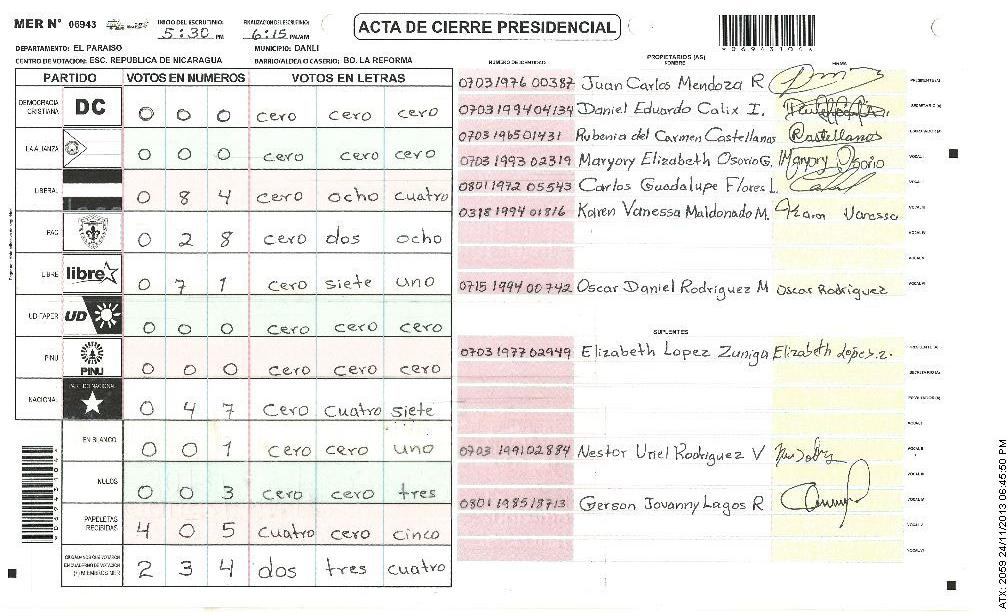 MER N° 06943
INICIO DEL ESCRUTINIO: 5:30 PM
FINALIZACION DEL ESCRUTINIO: 6:15 PM/AM
ACTA DE CIERRE PRESIDENCIAL
06943104
DEPARTAMENTO: EL PARAISO
MUNICIPIO: DANLI
CENTRO DE VOTACIÓN: ESC. REPUBLICA DE NICARAGUA
BARRIO/ALDEA O CASERIO: BO. LA REFORMA
PARTIDO VOTOS EN NUMEROS VOTOS EN LETRAS
DEMOCRACIA CRISTIANA DC 0 0 0 cero cero cero
LA ALIANZA 0 0 0 cero cero cero
LIBERAL 0 8 4 cero ocho cuatro
PAC 0 2 8 cero dos ocho
LIBRE libre 0 7 1 cero siete uno
UD-FAPER UD 0 0 0 cero cero cero
PINU PINU 0 0 0 cero cero cero
NACIONAL PARTIDO NACIONAL 0 4 7 cero cuatro siete
EN BLANCO 0 0 1 cero cero uno
NULOS 0 0 3 cero cero tres
PAPELETAS RECIBIDAS 4 0 5 cuatro cero cinco
CIUDADANOS QUE VOTARON EN CUADERNO DE VOTACION (+) MIEMBROS MER 2 3 4 dos tres cuatro
PROPIETARIOS (AS)
NUMERO DE IDENTIDAD NOMBRE FIRMA
0703 1976 00387 Juan Carlos Mendoza R PRESIDENTE (A)
0703 1994 04134 Daniel Eduardo Calix I. SECRETARIO (A)
0703 1965 01431 Rubenia del Carmen Castellanos Castellanos ESCRUTADOR (A)
0703 1993 02319 Maryory Elizabeth Osorio G. Maryory Osorio VOCAL I
0801 1972 05543 Carlos Guadalupe Flores L. VOCAL II
0318 1994 01816 Karen Vanessa Maldonado M. Karen Vanessa VOCAL III
VOCAL IV
VOCAL V
0715 1994 00742 Oscar Daniel Rodriguez M Oscar Rodriguez VOCAL VI
SUPLENTES
0703 1977 02949 Elizabeth Lopez Zuniga Elizabeth Lopez z. PRESIDENTE (A)
SECRETARIO (A)
ESCRUTADOR (A)
VOCAL I
0703 1991 02884 Nestor Uriel Rodriguez V VOCAL II
VOCAL III
0801 1985 18713 Gerson Jovanny Lagos R VOCAL IV
VOCAL V
VOCAL VI
ATX: 2059 24/11/2013 06:45:50 PM